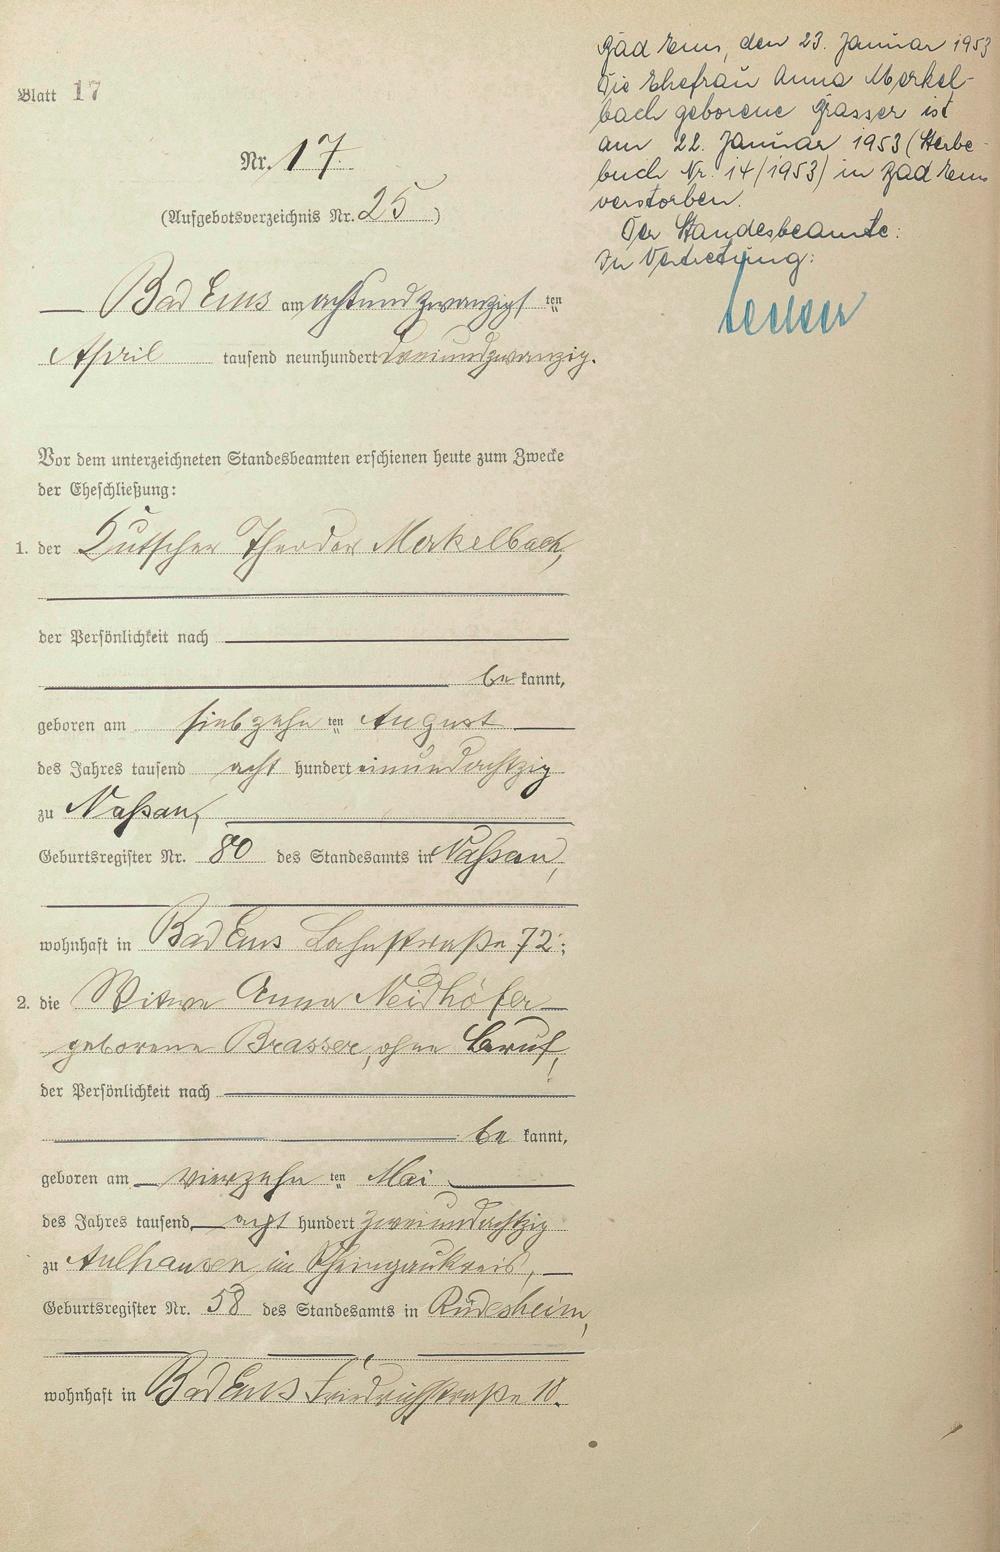 Blatt 17
Nr. 17.
(Aufgebotsverzeichnis Nr. 25)
Bad Ems am achtundzwanzigsten
April tausend neunhundert dreiundzwanzig.
Vor dem unterzeichneten Standesbeamten erschienen heute zum Zwecke
der Eheschließung:
1. der Kutscher Theodor Merkelbach,
der Persönlichkeit nach
be kannt,
geboren am siebzehn ten August
des Jahres tausend acht hundert einundachtzig
zu Nassau,
Geburtsregister Nr. 80 des Standesamts in Nassau,
wohnhaft in Bad Ems Lahnstraße 72;
2. die Witwe Anna Neidhöfer
geborene Brasser, ohne Beruf,
der Persönlichkeit nach
be kannt,
geboren am vierzehn ten Mai
des Jahres tausend acht hundert zweiundachtzig
zu Aulhausen im Rheingaukreis,
Geburtsregister Nr. 58 des Standesamts in Rüdesheim,
wohnhaft in Bad Ems Friedrichstraße 10.
Bad Ems, den 23. Januar 1953
Die Ehefrau Anna Merkel-
bach geborene Grasser ist
am 22. Januar 1953 (Sterbe-
buch Nr. 14/1953) in Bad Ems
verstorben.
Der Standesbeamte:
In Vertretung: